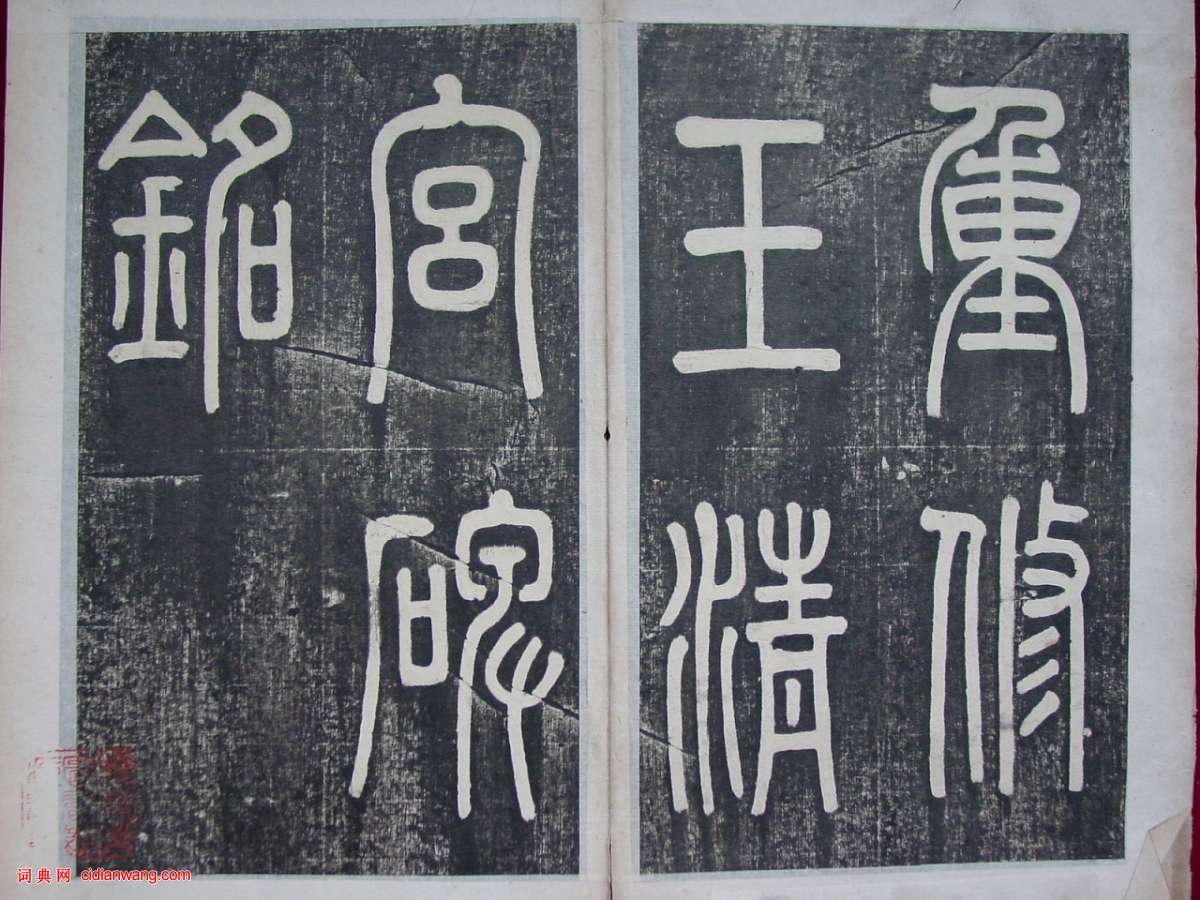 重修
玉清
宮碑
銘
词典网 cidianwang.com